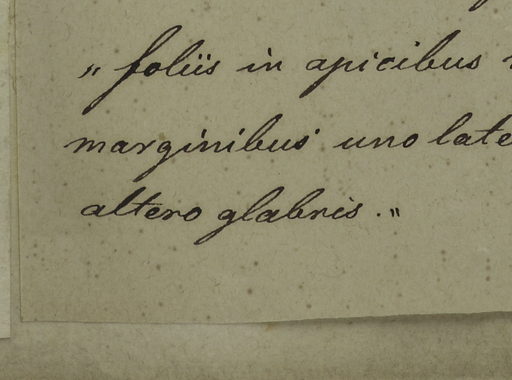 „foliis in apicibus
marginibus uno late
altero glabris."